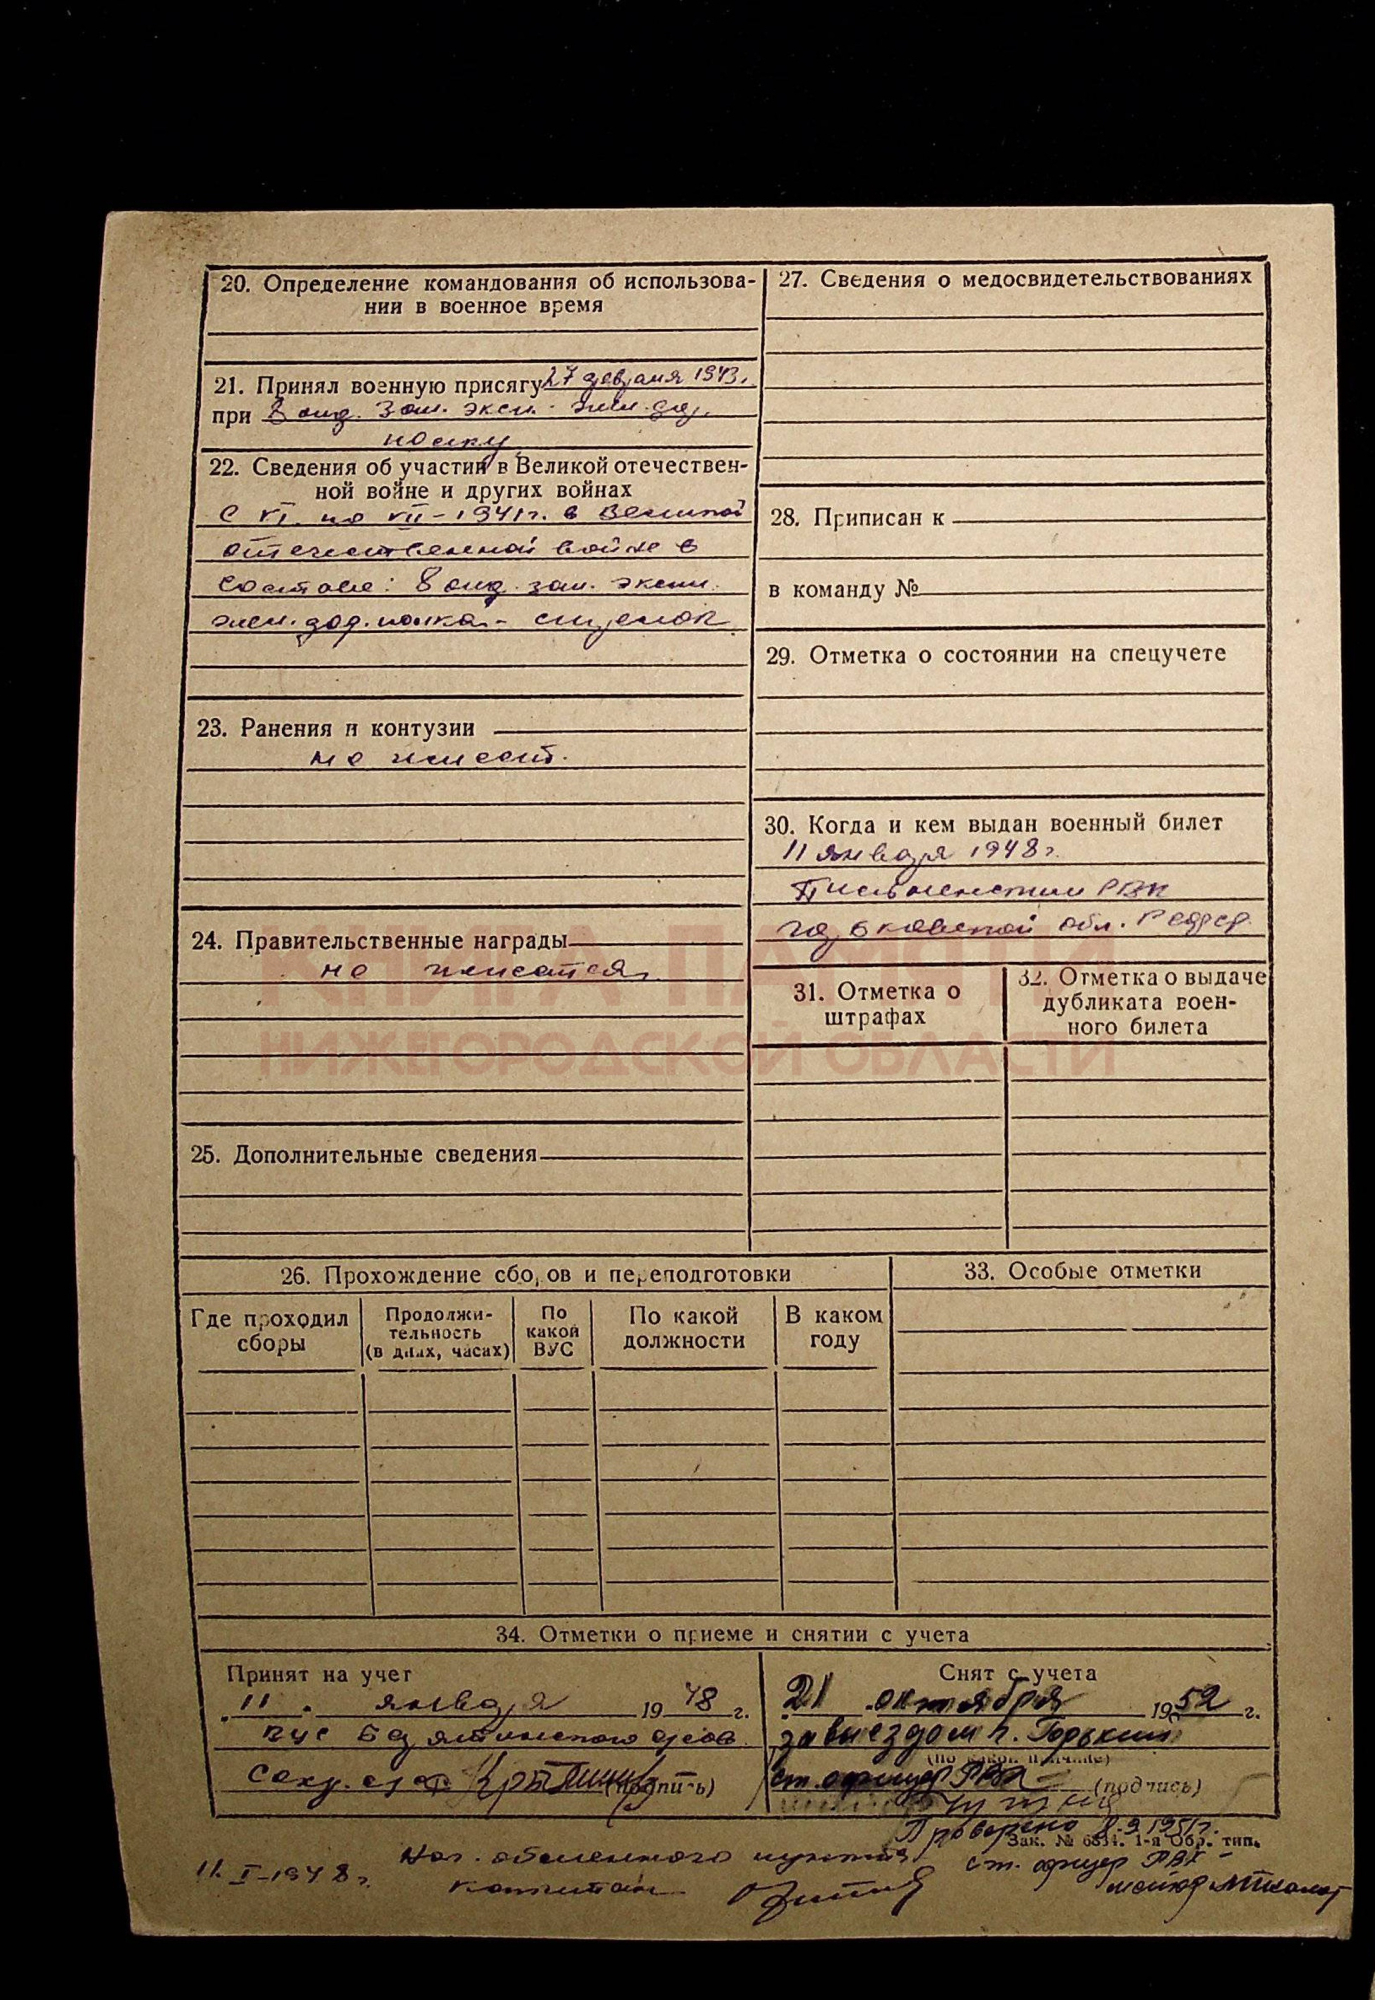 20. Определение командования об использова-
нии в военное время
21. Принял военную присягу 27 февраля 1943г.
при 8 отд. зап. эксп. жел. дор.
полку
22. Сведения об участии в Великой отечествен-
ной войне и других войнах
С VI по VII-1941г. в Великой
отечественной войне в
составе: 8 отд. зап. эксп.
жел. дор. полка - сцепщик
23. Ранения и контузии
не имеет.
24. Правительственные награды
не имеется.
25. Дополнительные сведения
27. Сведения о медосвидетельствованиях
28. Приписан к
в команду №
29. Отметка о состоянии на спецучете
30. Когда и кем выдан военный билет
11 января 1948г.
РВК
Горьковской обл. РСФСР
31. Отметка о
штрафах
32. Отметка о выдаче
дубликата воен-
ного билета
КНИГА ПАМЯТИ
НИЖЕГОРОДСКОЙ ОБЛАСТИ
26. Прохождение сборов и переподготовки
Где проходил
сборы
Продолжи-
тельность
(в днях, часах)
По
какой
ВУС
По какой
должности
В каком
году
33. Особые отметки
34. Отметки о приеме и снятии с учета
Принят на учет
"11" января 1948 г.
ВУС
Секр. с/с (подпись)
Снят с учета
21 октября 1952 г.
за выездом г. Горький
(по какой причине)
ст. офицер РВК (подпись)
Проверено 8-9 1951г.
Зак. № 6834. 1-я Обр. тип.
ст. офицер РВК
майор
11. I-1948г. Нач. обменного пункта
капитан